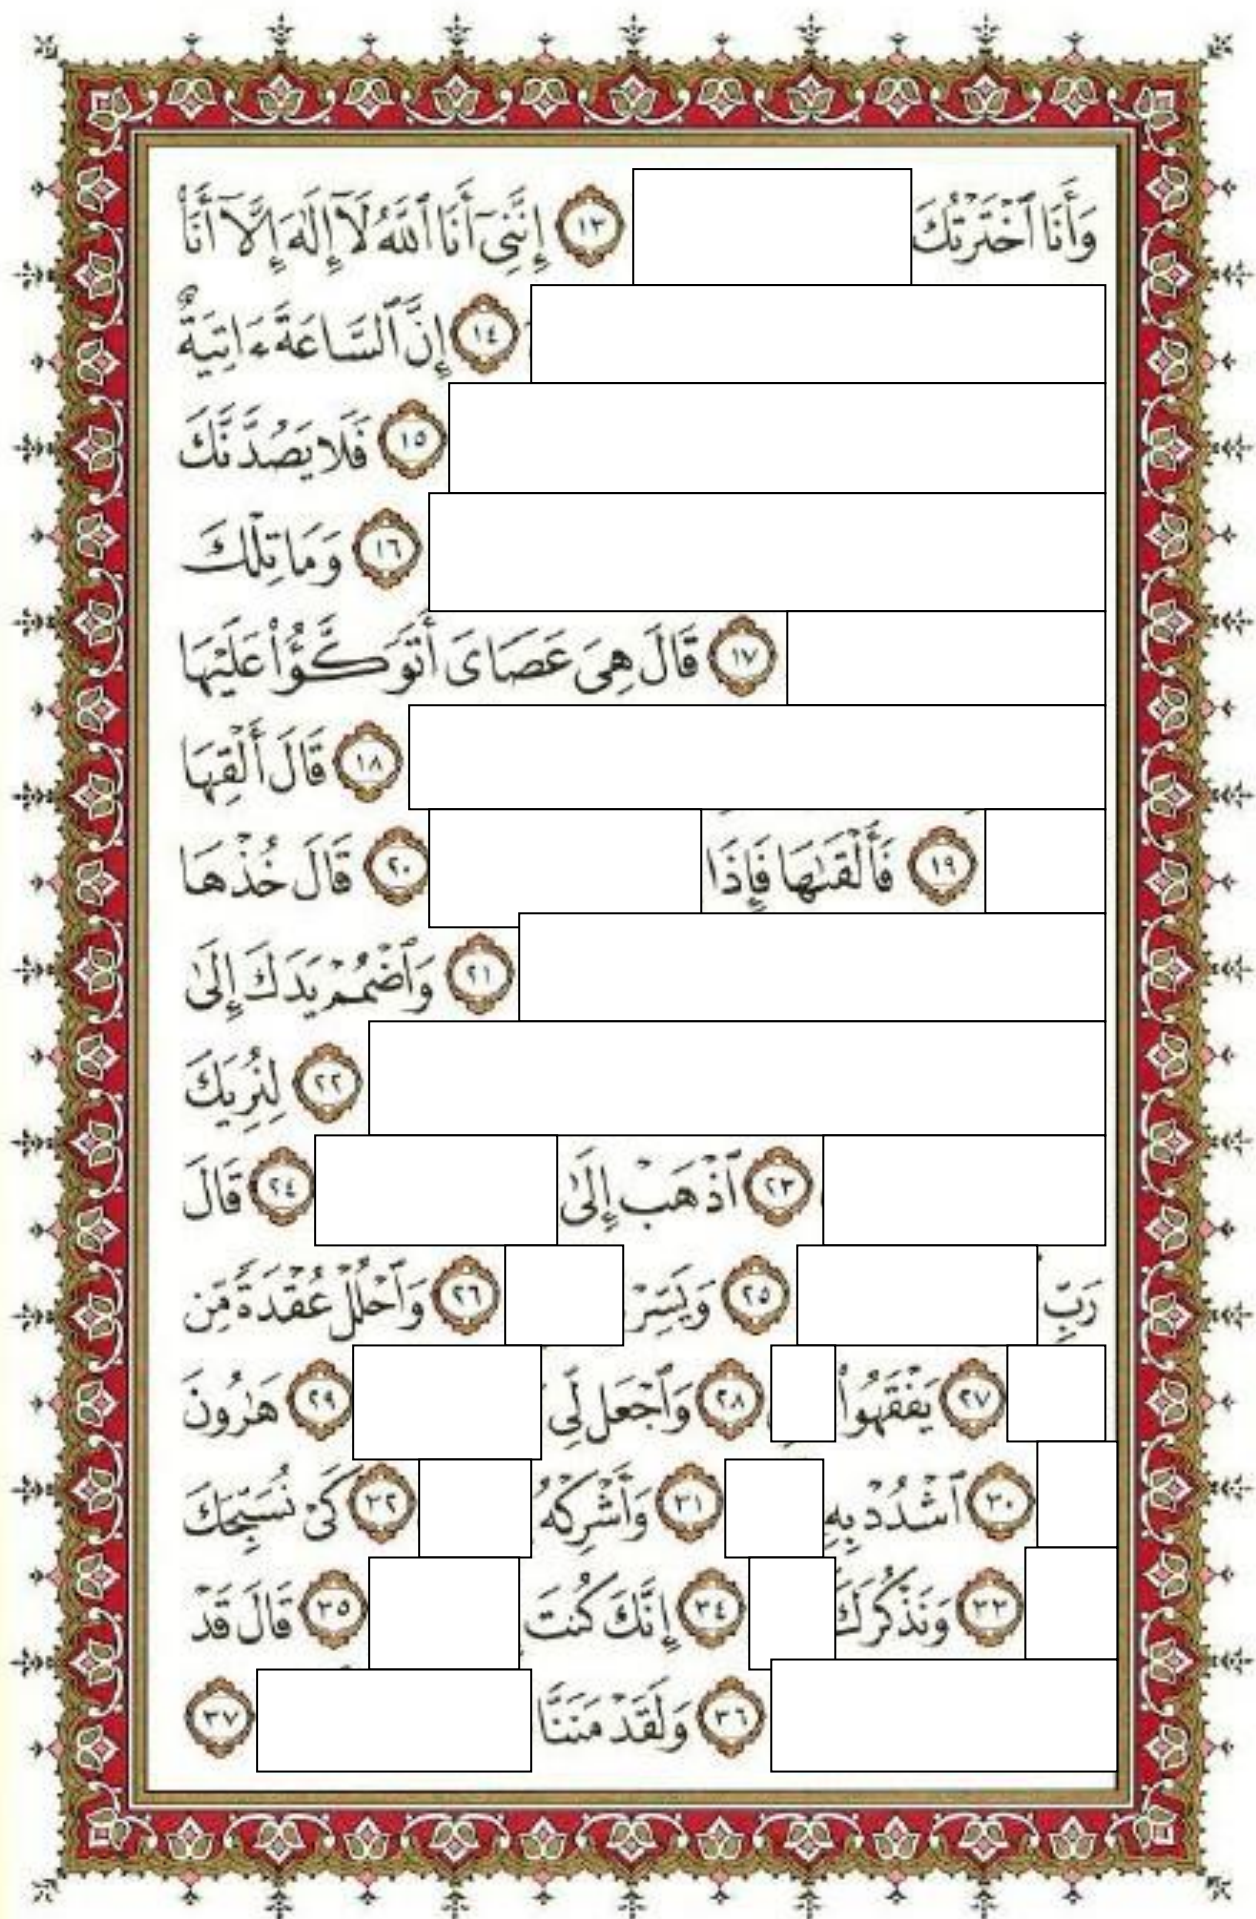 وَأَنَا ٱخْتَرْتُكَ ١٣ إِنَّنِىٓ أَنَا ٱللَّهُ لَآ إِلَٰهَ إِلَّآ أَنَا۠
١٤ إِنَّ ٱلسَّاعَةَ ءَاتِيَةٌ
١٥ فَلَا يَصُدَّنَّكَ
١٦ وَمَا تِلْكَ
١٧ قَالَ هِىَ عَصَاىَ أَتَوَكَّؤُا۟ عَلَيْهَا
١٨ قَالَ أَلْقِهَا
١٩ فَأَلْقَىٰهَا فَإِذَا ٢٠ قَالَ خُذْهَا
٢١ وَٱضْمُمْ يَدَكَ إِلَىٰ
٢٢ لِنُرِيَكَ
٢٣ ٱذْهَبْ إِلَىٰ ٢٤ قَالَ
رَبِّ ٢٥ وَيَسِّرْ ٢٦ وَٱحْلُلْ عُقْدَةً مِّن
٢٧ يَفْقَهُوا۟ ٢٨ وَٱجْعَل لِّى ٢٩ هَٰرُونَ
٣٠ ٱشْدُدْ بِهِۦ ٣١ وَأَشْرِكْهُ ٣٢ كَىْ نُسَبِّحَكَ
٣٣ وَنَذْكُرَكَ ٣٤ إِنَّكَ كُنتَ ٣٥ قَالَ قَدْ
٣٦ وَلَقَدْ مَنَنَّا ٣٧